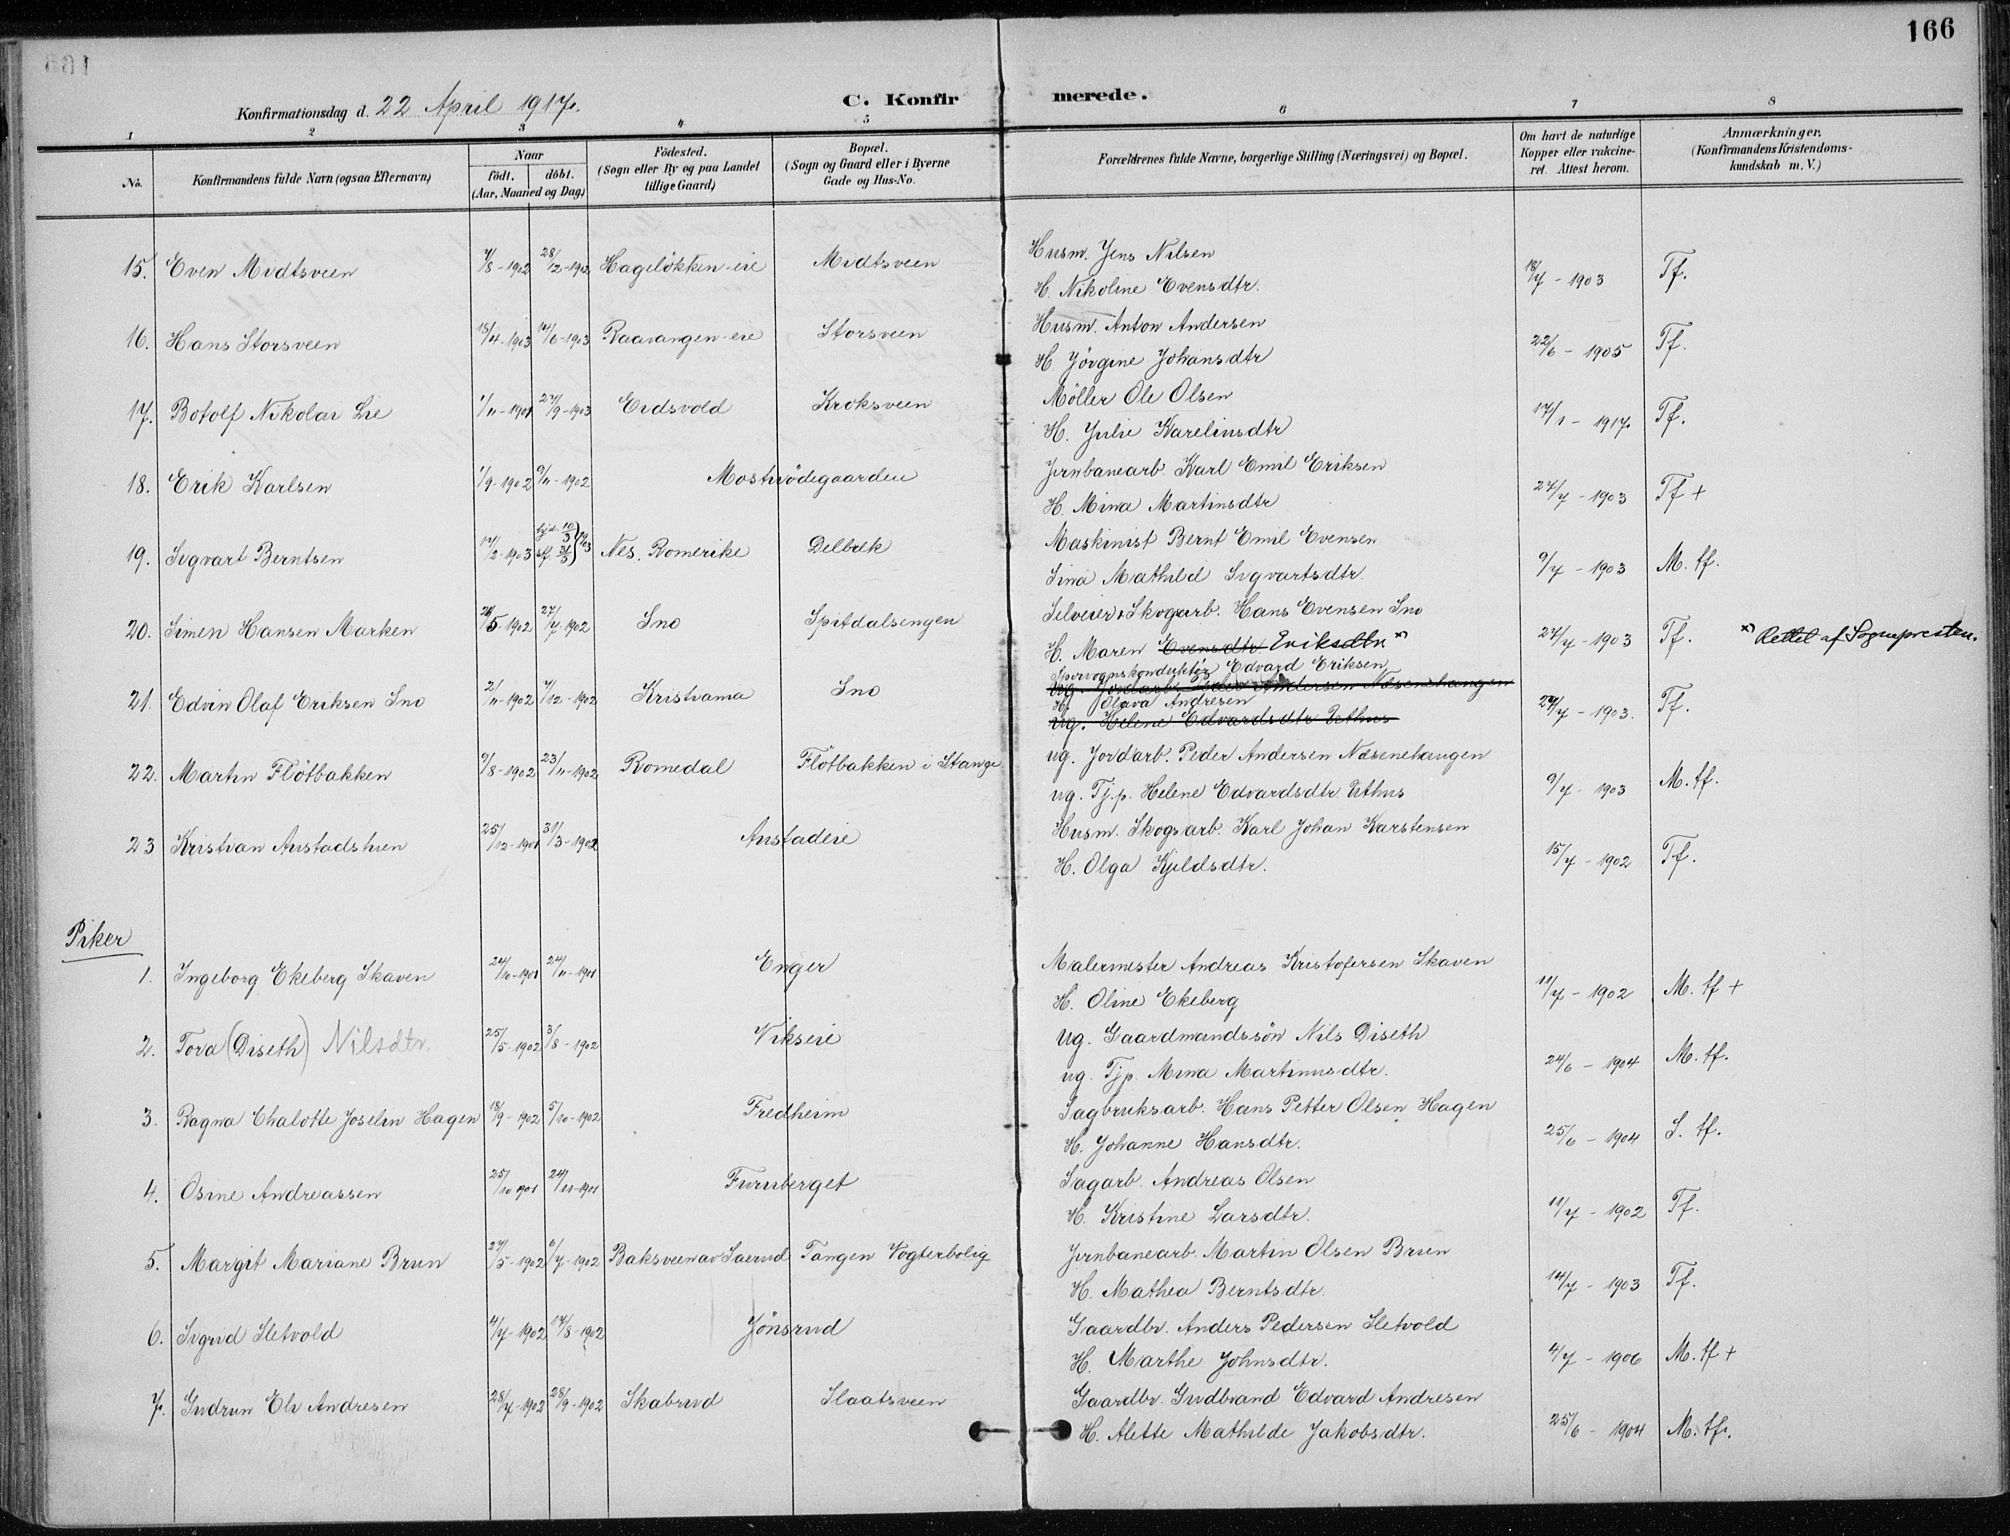 166
Konfirmationsdag d. 22 April 1917.
C. Konfirmerede.
1 2 3 4 5 6 7 8
No.
Konfirmandens fulde Navn (ogsaa Efternavn)
Naar
födt. döbt.
(Aar, Maaned og Dag)
Födested.
(Sogn eller By og paa Landet
tillige Gaard)
Bopæl.
(Sogn og Gaard eller i Byerne
Gade og Hus-No.
Forældrenes fulde Navne, borgerlige Stilling (Næringsvei) og Bopæl.
Om havt de naturlige
Kopper eller vakcine-
ret. Attest herom.
Anmærkninger.
(Konfirmandens Kristendoms-
kundskab m. V.)
15. Even Midtsveen 7/8-1902 28/12-1902 Hageløkken eie Midtsveen Husm. Jens Nilsen
H. Nikoline Evensdtr. 18/7-1903 Tf.
16. Hans Storsveen 15/4-1903 14/6-1903 Raavangen eie Storsveen Husm. Anton Andersen
H Jörgine Johansdtr 22/6-1905 Tf.
17. Botolf Nikolai Lie 1/11-1901 27/9-1903 Eidsvold Kroksveen Möller Ole Olsen
H. Julie Karelinsdtr 17/1-1917 Tf.
18. Erik Karlsen 1/9-1902 9/11-1902 Jernbanearb. Karl Emil Eriksen
H. Mina Martinsdtr 27/7-1903 Tf +
19. Sigvart Berntsen 17/2-1903 Nes, Romerike Delbek Maskinist Bernt Emil Evensen
Sina Mathild Sigvartsdtr. 9/7-1903 M. tf.
20. Simen Hansen Marken 5-1902 27/7-1902 Sno Spitdalsengen Selveier, Skogarb. Hans Evensen Sno
H. Maren Evensdtr Eriksdtr. x) 27/7-1903 Tf. x) Rettet af Sognepresten.
21. Edvin Olaf Eriksen Sno 2/11-1902 7/12-1902 Kristiania Sno Sporvognskonduktör Edvard Eriksen
ug. Jordarb. Peder Andersen Næsenehaugen
H. Olava Andresen
ug. Helene Edvardsdtr Uthus 27/7-1903. Tf.
22. Martin Flötbakken 9/8-1902 23/11-1902 Romedal Flötbakken i Stange ug. Jordarb. Peder Andersen Næsenehaugen
ug. Tj.p. Helene Edvardsdtr Uthus 9/7-1903 M. tf.
23 Kristian Anstadstuen 25/12-1901 31/3-1902 Anstadeie Husm. Skogsarb. Karl Johan Karstensen
H. Olga Kjeldsdtr. 15/7-1902 Tf.
Piker
1. Ingeborg Ekeberg Skaven 24/10-1901 24/11-1901 Enger Malermester Andreas Kristofersen Skaven
H. Oline Ekeberg 11/7-1902 M. tf +
2. Tora (Diseth) Nilsdtr. 25/5-1902 3/8-1902 Vikseie ug. Gaardmandssön Nils Diseth
ug. Tjp. Mina Martinusdtr. 24/6-1904 M. tf.
3. Ragna Chalotte Joselin Hagen 18/9-1902 5/10-1902 Fredheim Sagbruksarb. Hans Petter Olsen Hagen
H. Johanne Hansdtr. 25/6-1904 S. tf.
4. Osine Andreassen 25/10 1901 24/11-1901 Furuberget Sagarb. Andreas Olsen
H. Kristine Larsdtr. 11/7-1902 Tf.
5. Margit Mariane Brun 27/5-1902 6/7-1902 Baksveen av Saerud Tangen Vogterbolig Jernbanearb. Martin Olsen Brun
H. Mathea Berntsdtr. 14/7-1903 Tf.
6. Sigrid Sletvold 4/7-1902 17/8-1902 Jönsrud Gaardbr. Anders Pedersen Sletvold
H. Marthe Johnsdtr. 4/7-1906 M. tf +
7. Gudrun Eli Andresen 28/7-1902 28/9-1902 Skabrud Slaatsveen Gaardbr. Gudbrand Edvard Andresen
H. Alette Mathilde Jakobsdtr. 25/6-1904 M. tf.